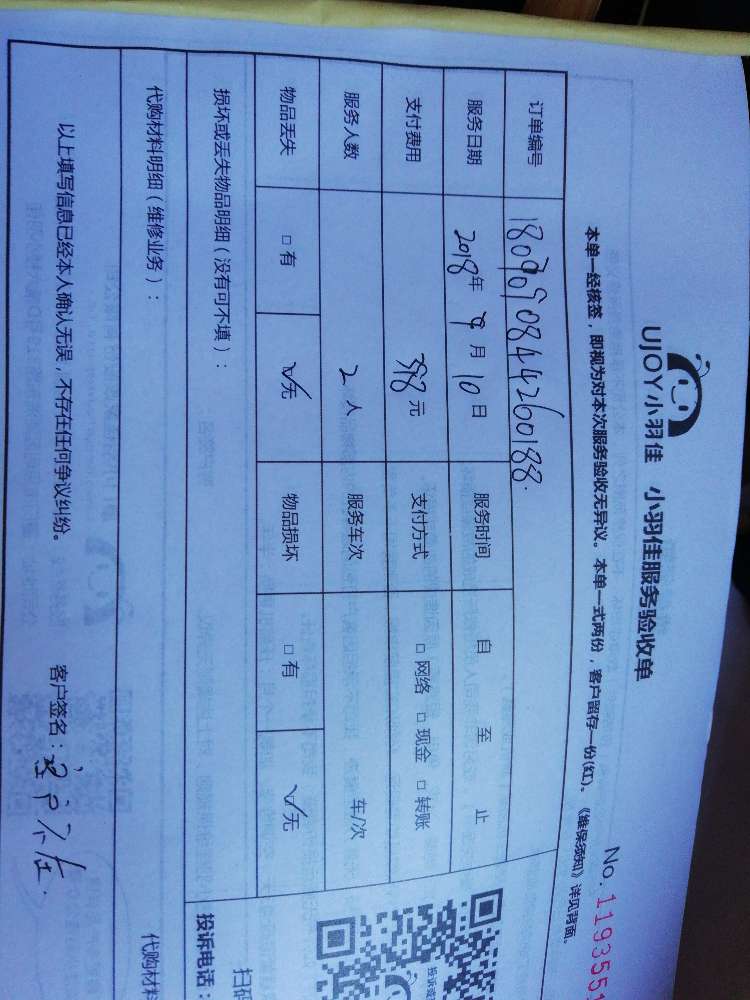 UJOY小羽佳 小羽佳服务验收单
No.1193551
本单一经核签，即视为对本次服务验收无异议。本单一式两份，客户留存一份(红)。《维保须知》详见背面。
订单编号 1809090844260188.
服务日期 2018年 9月 10日 服务时间 自 至 止
支付费用 398元 支付方式 □网络 □现金 □转账
服务人数 2人 服务车次 车/次
物品丢失 □有 ☑无 物品损坏 □有 ☑无
损坏或丢失物品明细（没有可不填）：
投诉电话：
代购材料明细（维修业务）：
代购材料
以上填写信息已经本人确认无误，不存在任何争议纠纷。
客户签名：客户不在.